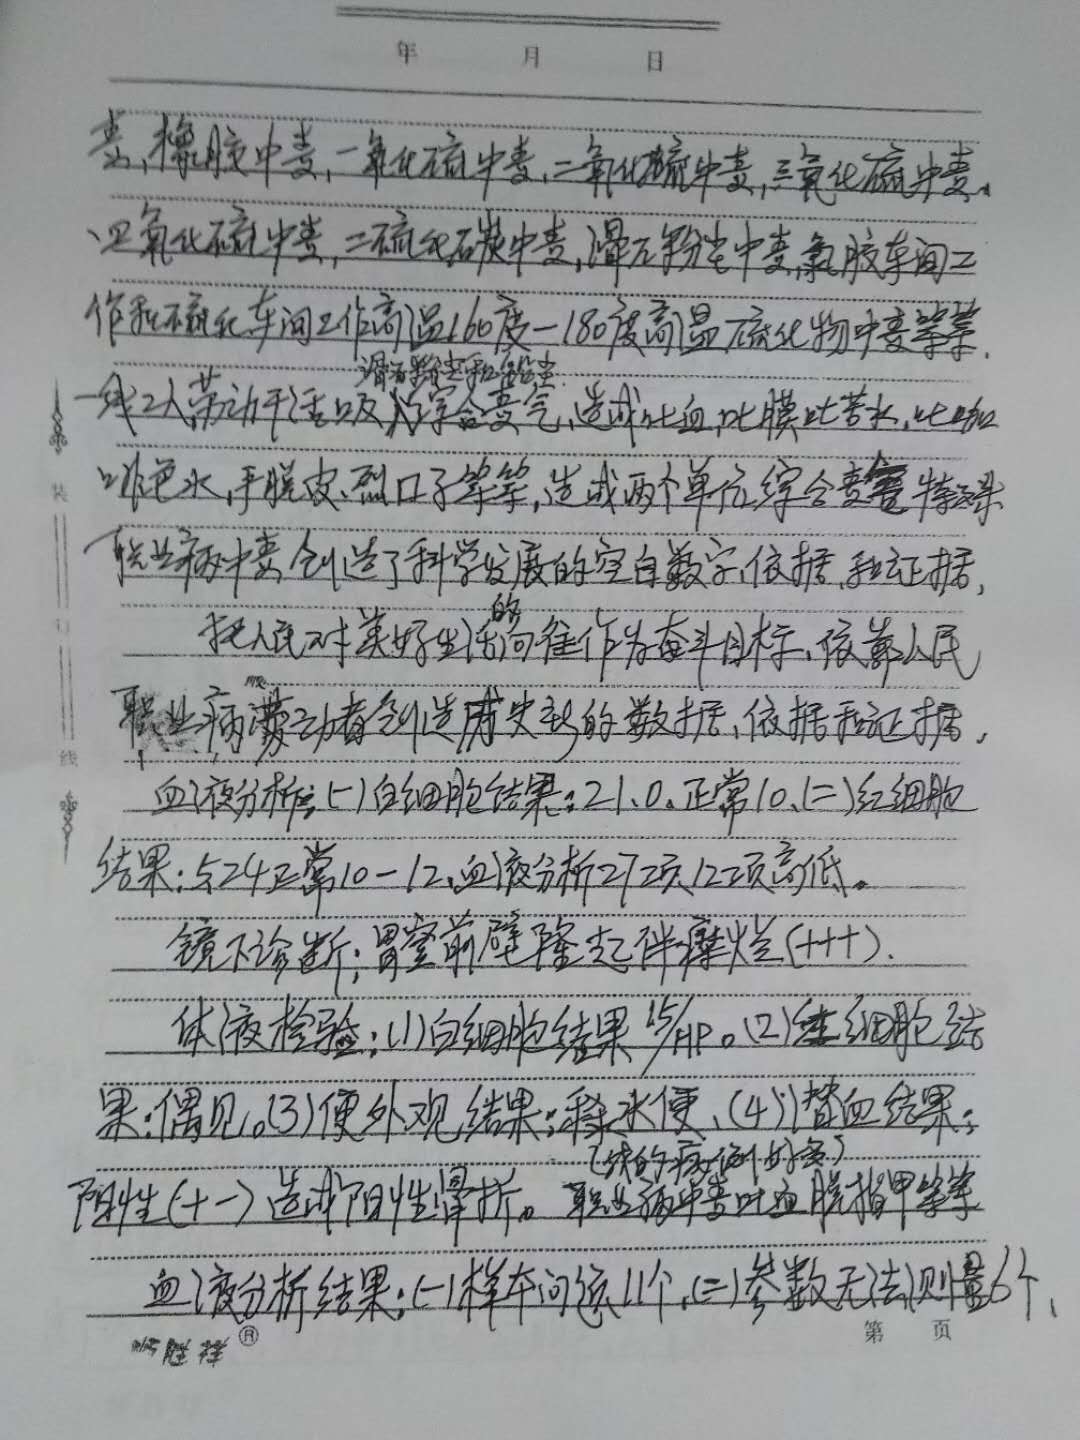 年 月 日
毒,橡胶中毒,一氧化硫中毒,二氧化硫中毒,三氧化硫中毒、
四氧化硫中毒,二硫化碳中毒,滑石粉尘中毒,氯胶车间工
作和硫化车间工作高温160度一180度高温硫化物中毒等等,
滑石粉尘和铅尘
一线工人劳动干活吸入综合毒气,造成吐血,吐膜吐苦水,吐咖
啡色水,手脱皮、烈口子等等,造成两个单位综合毒气特殊
职业病中毒,创造了科学发展的空白数字、依据和证据,
把人民对美好生活的向往作为奋斗目标、依靠人民
职业病劳动者创造历史新的数据、依据和证据,
血液分析:(一)白细胞结果:21.0.正常10、(二)红细胞
结果:524正常10-12、血液分析27项12项高低。
镜下诊断:胃窦前壁隆起伴糜烂(+++).
体液检验:(1)白细胞结果15/HP。(2)红细胞结
果:偶见。(3)便外观结果:稀水便、(4)潜血结果:
阳性(+一)造成阳性骨折。职业病中毒吐血脱指甲等等
血液分析结果:(一)样本问题11个,(二)参数无法测量6个、
装 订 线
胜祥®
第 页